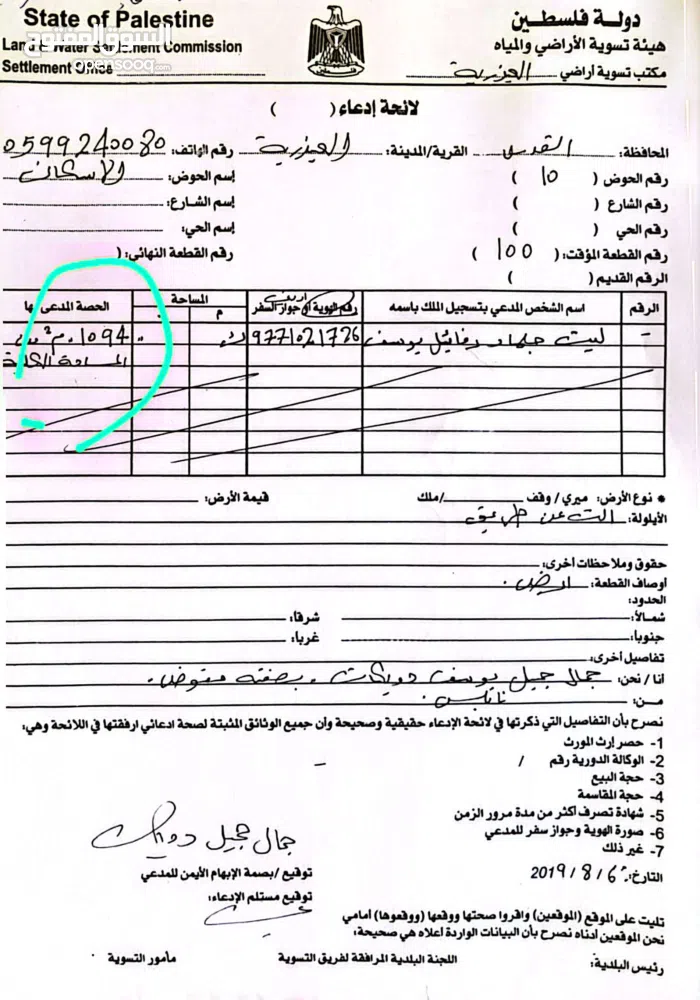 State of Palestine
Land & Water Settlement Commission
Settlement Office
السوق المفتوح
opensooq.com
دولة فلسطين
هيئة تسوية الأراضي والمياه
مكتب تسوية أراضي العيزرية
لائحة إدعاء ( )
المحافظة: القدس القرية/المدينة: العيزرية رقم الهاتف: 0599240080
رقم الحوض ( 10 ) إسم الحوض: الاسكان
رقم الشارع ( ) إسم الشارع:
رقم الحي ( ) إسم الحي:
رقم القطعة المؤقت: ( 100 ) رقم القطعة النهائي: (
الرقم القديم ( )
الرقم اسم الشخص المدعي بتسجيل الملك باسمه رقم الهوية أو جواز السفر المساحة الحصة المدعى بها
م د
- يوسف 9771021726 1094 م²
المساحة الكلية
• نوع الأرض: ميري / وقف /ملك قيمة الأرض:
الأيلولة: الت عن طريق
حقوق وملاحظات أخرى:
أوصاف القطعة: ارض.
الحدود:
شمالاً: شرقا:
جنوبا: غربا:
تفاصيل أخرى:
أنا / نحن: جمال جميل يوسف دويكات . بصفته مفوض.
من: نابلس.
نصرح بأن التفاصيل التي ذكرتها في لائحة الإدعاء حقيقية وصحيحة وان جميع الوثائق المثبتة لصحة ادعائي ارفقتها في اللائحة وهي:
1- حصر إرث المورث
2- الوكالة الدورية رقم / -
3- حجة البيع
4- حجة المقاسمة
5- شهادة تصرف أكثر من مدة مرور الزمن
6- صورة الهوية وجواز سفر للمدعي
7- غير ذلك
جمال جميل دويكات
التاريخ: 6 / 8 / 2019
توقيع / بصمة الإبهام الأيمن للمدعي
توقيع مستلم الإدعاء:
تليت على الموقع (الموقعين) واقروا صحتها ووقعها (ووقعوها) أمامي
نحن الموقعين ادناه نصرح بأن البيانات الواردة أعلاه هي صحيحة:
رئيس البلدية: اللجنة البلدية المرافقة لفريق التسوية مأمور التسوية